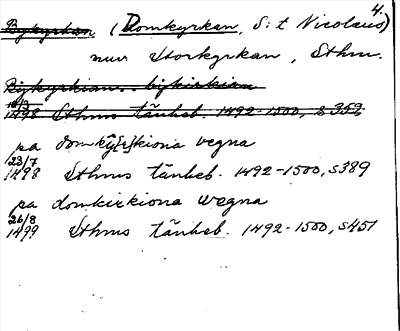 4.
Bykyrkan (Domkyrkan, S:t Nicolaus)
nuv Storkyrkan, Sthm.
Bykyrkian.. bykirkian
18/3
1498 Sthms tänkeb. 1492-1500, s 353
pa domky[r]kiona vegna
23/7
1498 Sthms tänkeb. 1492-1500, s 389
pa domkirkiona wegna
26/8
1499 Sthms tänkeb. 1492-1500, s 451